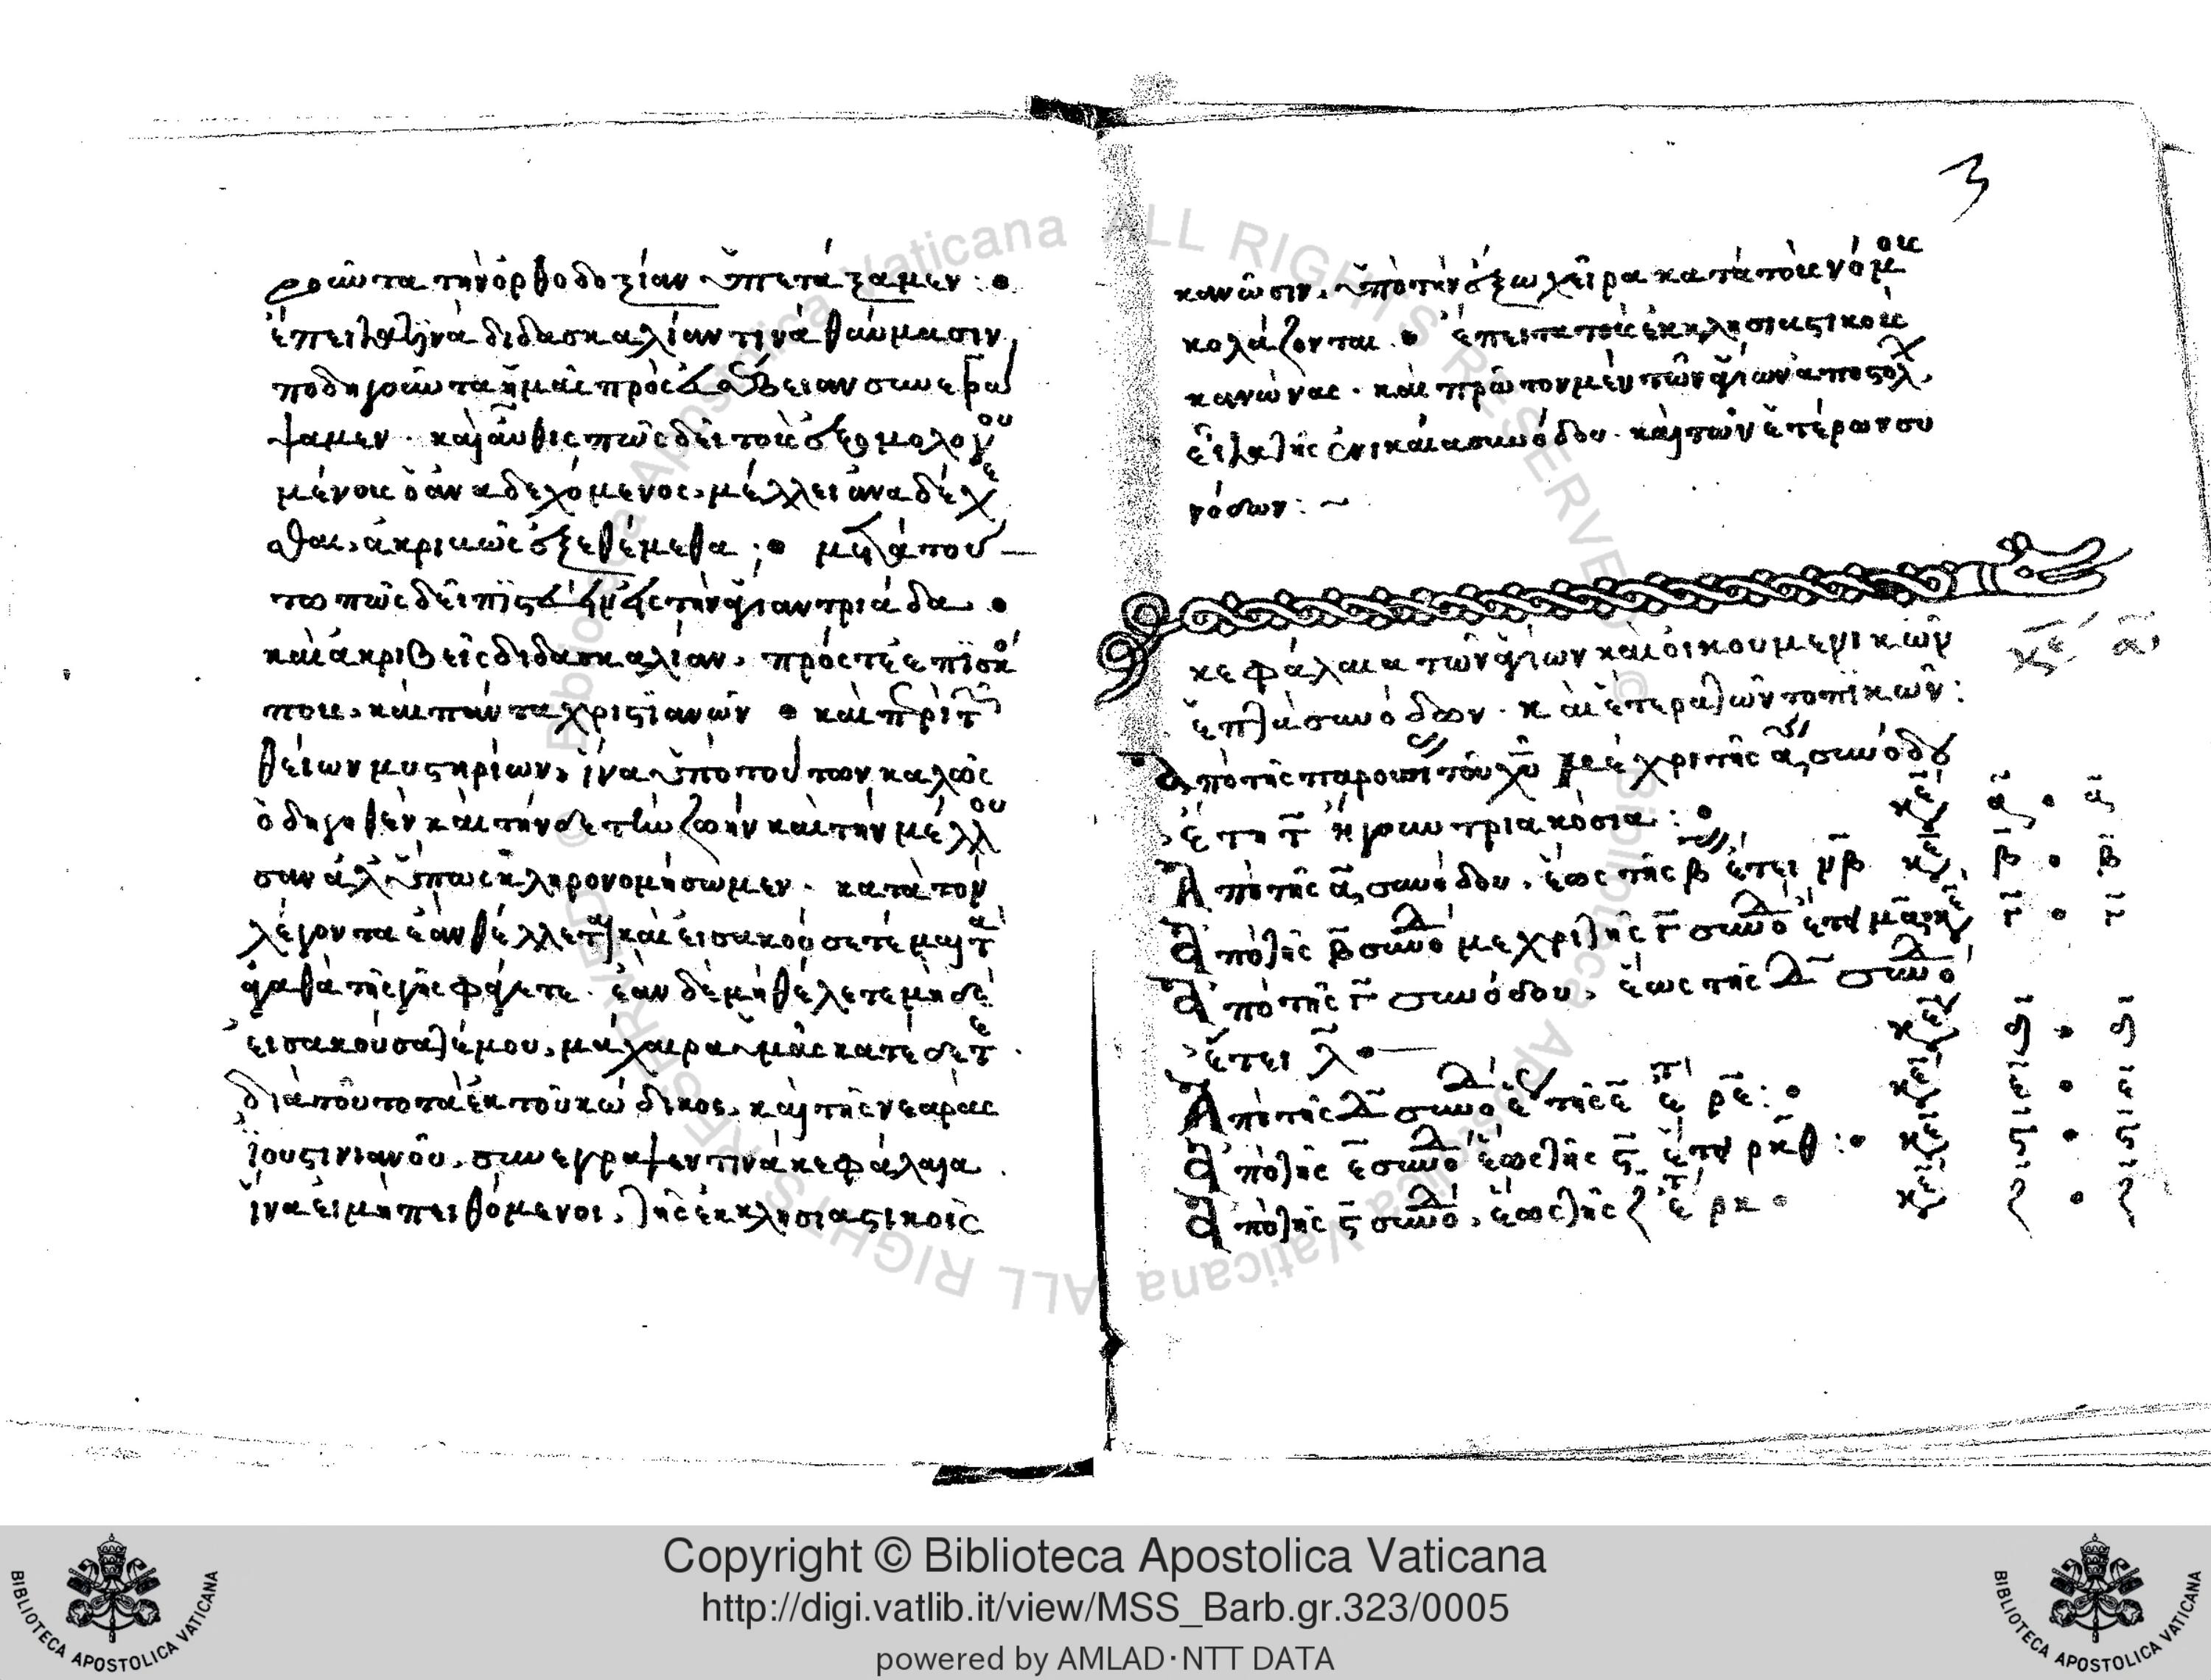 ροῦντα τὴν ὀρθοδοξίαν ὑπετάξαμεν :
ἔπειτα τινὰ διδασκαλίαν τινὰ θαύμασιν
ποδηγοῦντα ἡμᾶς πρὸς εὐσέβειαν συνεγρά
ψαμεν · καὶ αὖθις πῶς δεῖ τοὺς ἐξομολογου
μένους ὁ ἀναδεχόμενος, μέλλει ἀναδέχε
σθαι, ἀκριβῶς ἐξεθέμεθα ; μετὰ τού
το πῶς δεῖ πιστεύειν εἰς τὴν ἁγίαν τριάδα
καὶ ἀκριβεῖς διδασκαλίαν, πρός τε ἐπισκό
πους, καὶ πάντα χριστιανῶν καὶ περὶ τῶν
θείων μυστηρίων, ἵνα ὑπὸ τούτων καλῶς
ὁδηγηθὲν καὶ τὴν δε τὴν ζωὴν καὶ τὴν μέλλου
σαν ἀλύπως κληρονομήσωμεν · κατὰ τὸν
λέγοντα ἐὰν θέλλετε καὶ εἰσακούσετέ μου τὰ
ἀγαθὰ τῆς γῆς φάγετε · ἐὰν δὲ μὴ θέλετε μηδὲ
εἰσακούσατέ μου, μάχαιρα ὑμᾶς κατέδετε ·
διὰ τοῦτο τὰ ἐκ τοῦ κώδικος, καὶ τῆς νεαρὰς
ἰουστινιανοῦ, συνεγράψεν τινὰ κεφάλαια .
ἵνα εἰ μὴ πειθόμενοι, τῆς ἐκκλησιαστικοῖς
3
κανῶσιν, ὑπὸ τὴν ἔξω χεῖρα κατὰ τοὺς νόμους
κολάζονται. ἔπειτα τοὺς ἐκκλησιαστικοὺς
κανώνας · καὶ πρῶτον μὲν τῶν ἁγίων ἀποστόλ
εἶτα τῆς ἐνικαία συνόδου · καὶ τῶν ἑτέρων συ
νόδων : ~
κεφάλαια τῶν ἁγίων καὶ οἰκουμενικῶν κε α
ἑπτὰ συνόδων · καὶ ἑτέρα τῶν τοπικῶν :
Ἀπὸ τῆς παρουσίας τοῦ χυ μέχρι τῆς α συνόδου
ἔτη τ ἤγουν τριακόσια : κε α · α
Ἀπὸ τῆς α συνόδου, ἕως τῆς β ἔτει νβ κε β · β
Ἀπὸ τῆς β συνό μεχρι τῆς γ συνό ἔτη μα κε γ · γ
Ἀπὸ τῆς γ συνόδου, ἕως τῆς δ συνό
ἔτει λ κε δ · δ
Ἀπὸ τῆς δ συνό ἕως τῆς ε ἔτη ρε : κε ε · ε
Ἀπὸ τῆς ε συνό ἕως τῆς ϛ ἔτη ρκθ : κε ϛ · ϛ
Ἀπὸ τῆς ϛ συνό, ἕως τῆς ζ ἔτ ρκ κε ζ · ζ
Copyright © Biblioteca Apostolica Vaticana
http://digi.vatlib.it/view/MSS_Barb.gr.323/0005
powered by AMLAD·NTT DATA
BIBLIOTECA APOSTOLICA VATICANA
BIBLIOTECA APOSTOLICA VATICANA